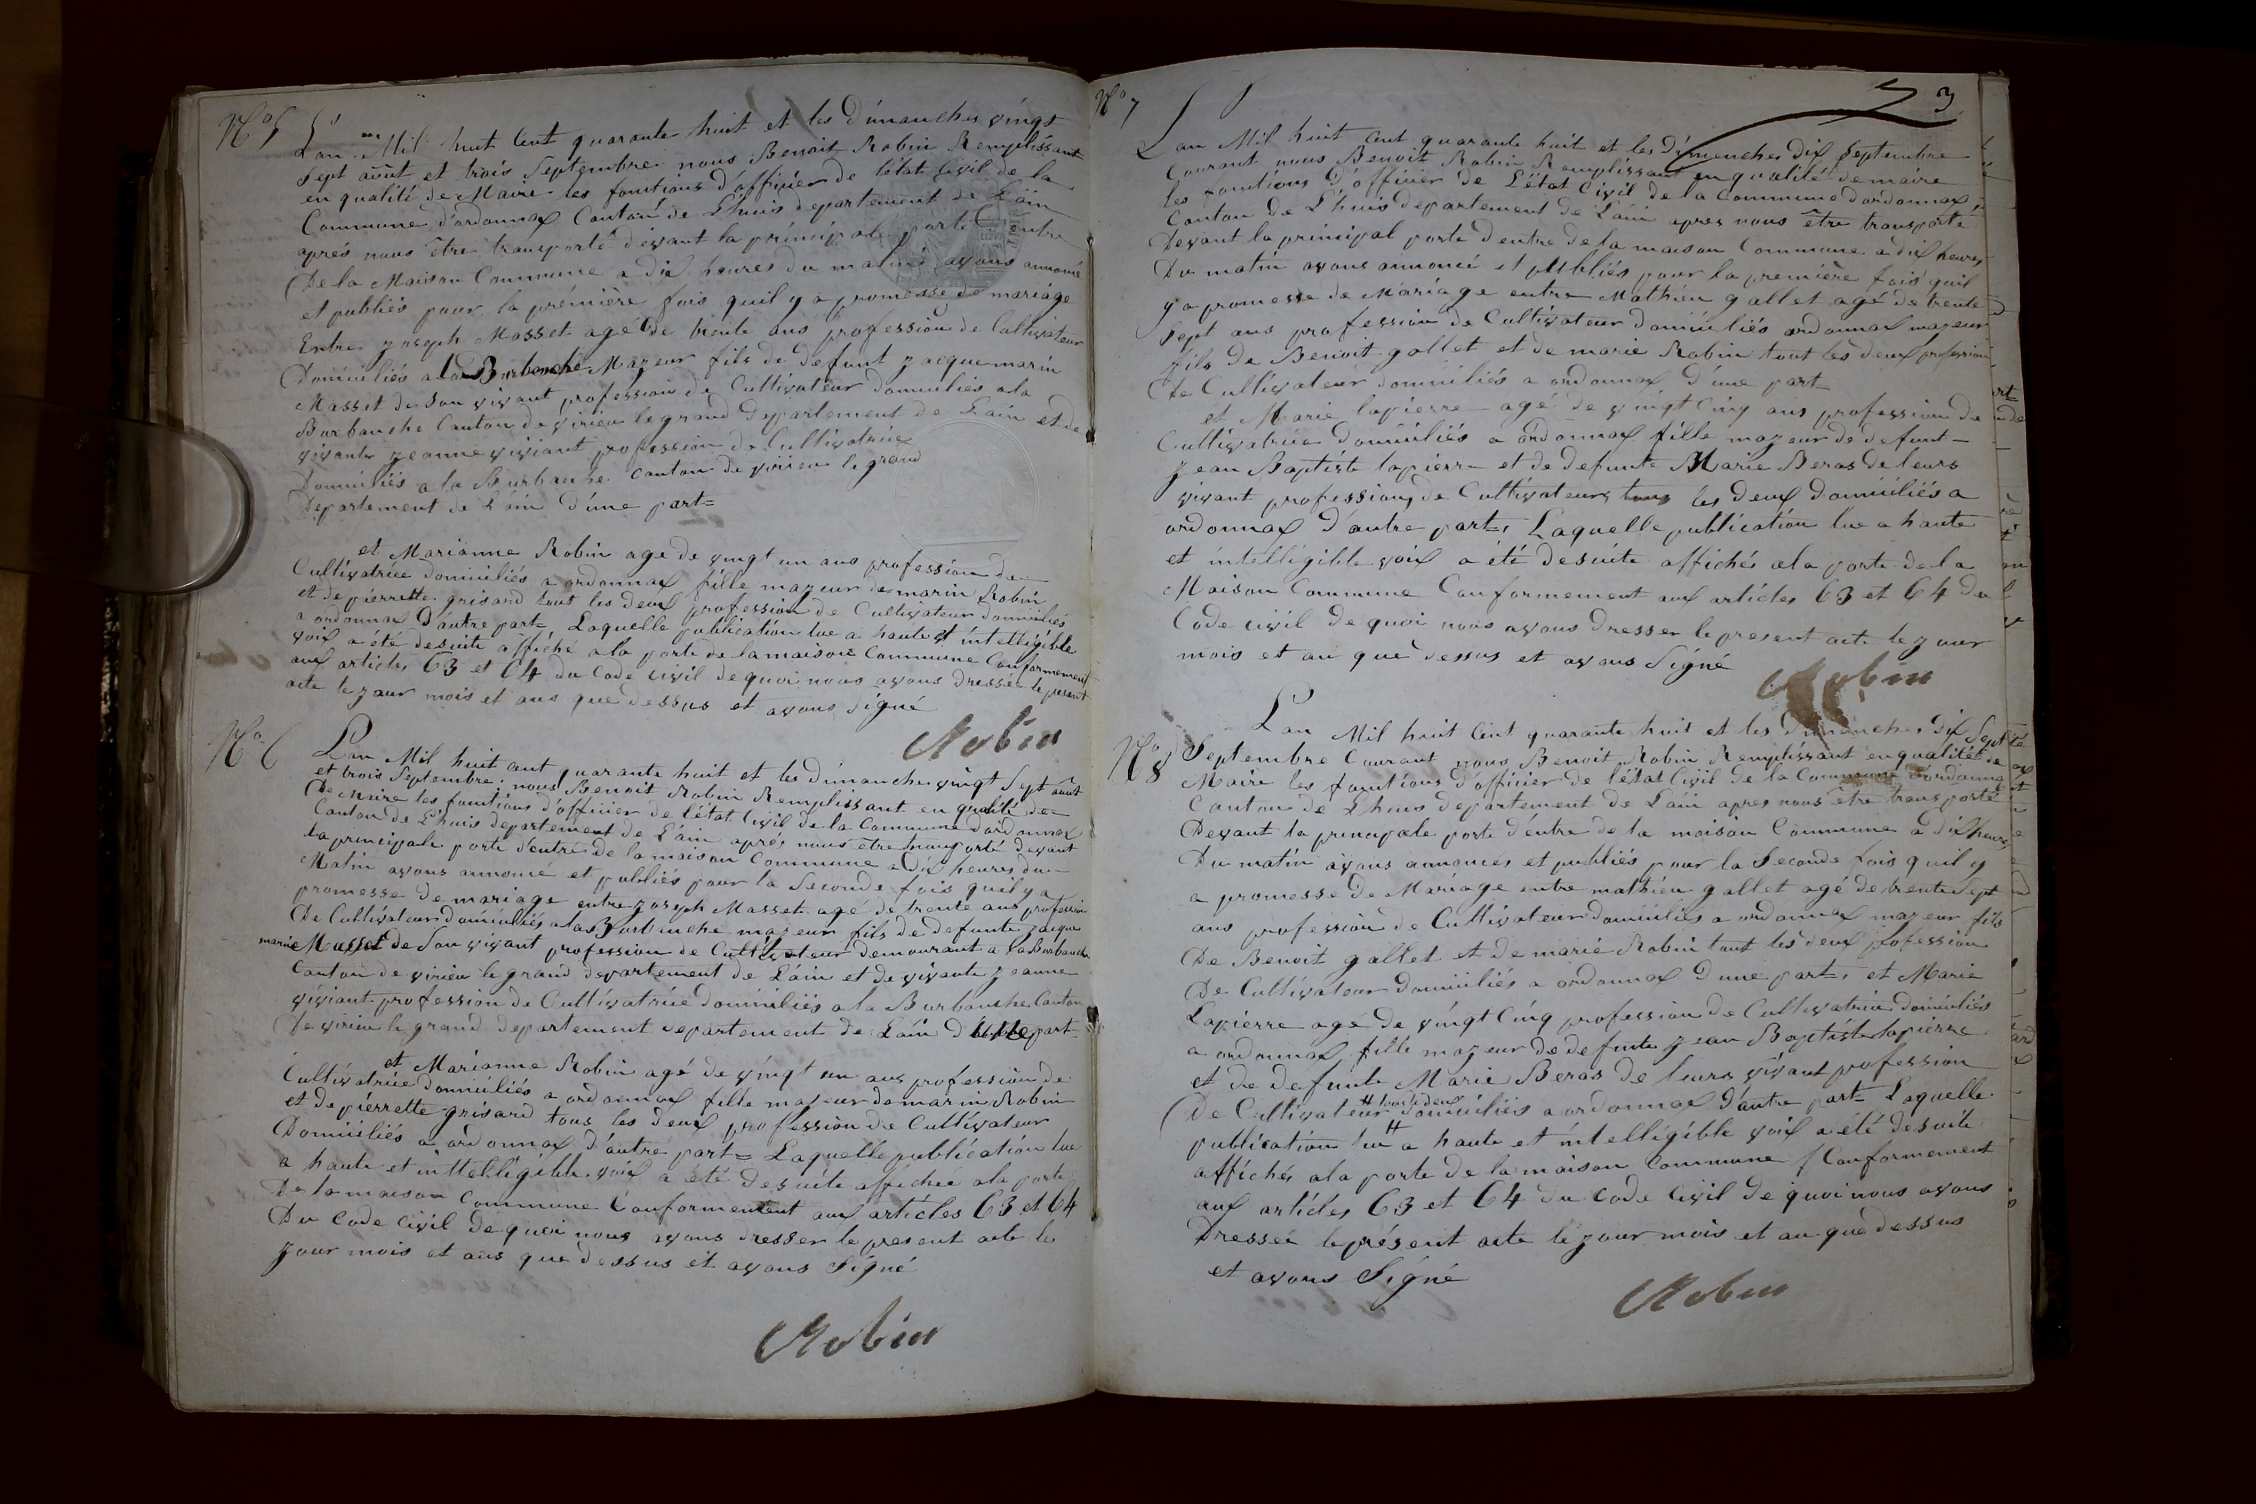 No 5
Lan Mil huit Cent quarante huit et les Dimanches vingt
Sept aoùt et trois Septembre nous Benoit Robin Remplissant
en qualité de Maire les fontions d'offiçier de l'état Civil de la
Commune d'ordonnax Canton de Lhuis departement de L'ain
aprés nous être transporté devant la principale porte D'entre
De la Maison Commune a dix heures du matin avons annoncé
et publiés pour la première fois quil y a promesse de mariage
Entre joseph Masset agé de trente ans profession de Cultivateur
Domiciliés a la Burbanche Majeur fils de defunt jacque marin
Masset de Son vivant profession de Cultivateur domiciliés a la
Burbanche Canton de virieu le grand Departement de Lain et de
vivante jeanne viviant profession de Cultivatrice
Domiciliés a la Burbanche canton de virieu le grand
Departement de L'ain d'une part=
et Marianne Robin agé de vingt un ans profession de
Cultivatrice domiciliés a ordonnax fille majeur de marin Robin
et de pierrette grisard tout les deux profession de Cultivateur domiciliés
a ordonnax D'autre part Laquelle publication lue a haute et intelligible
voix a été desuite affiché a la porte de la maison Commune Conformement
aux articles 63 et 64 du Code Civil de quoi nous avons dresser le present
acte le jour mois et ans que dessus et avons Signé
Robin
No 6
Lan Mil huit cent quarante huit et les dimanche vingt Sept aôut
et trois Septembre nous Benoit Robin Remplissant en qualité
De Maire les fontions d'officier de l'état Civil de la Commune d'ordonnax
Canton de Lhuis departement de L'ain aprés nous etre transporté devant
la principale porte d'entre de la maison Commune a Dix heures du
Matin avons annoncé et publiés pour la Seconde fois quil y a
promesse de mariage entre joseph Masset agé de trente ans profession
De Cultivateur domiciliés a la Burbenche majeur fils de defunte jacque
marin Masset de Son vivant profession de Cultivateur demourant a la Burbanche
Canton de virieu le grand departement de L'ain et de vivante jeanne
viviant profession de Cultivatrice domiciliés a la Burbanche Canton
De virieu le grand departement departement de Lain D'une part
et Marianne Robin agé de vingt un ans profession de
Cultivatrice domiciliés a ordonnax fille majeur de marin Robin
et de pierrette grisard tous les deux profession de Cultivateur
Domiciliés a ordonnax d'autre part= Laquelle publication lue
a haute et inttelligible voix a été desuite affichée a la porte
De la maison Commune Conformement aux articles 63 et 64
Du Code Civil de quoi nous avons dresser le present acte le
jour mois et ans que dessus et avons Signé
Robin
3
No 7
Lan Mil huit Cent quarante huit et les Dimenches Dix Septembre
Courant nous Benoit Robin Remplissant en qualité de maire
les fontions D'officier de L'état Civil de la Commune d'ordonnax
Canton de Lhuis departement de L'ain apres nous être transporté
Devant la principal porte d'entre de la maison Commune a dix heures
Du matin avons annoncé et publiés pour la premiere fois quil
y a promesse de Mariage entre Mathieu gallet agé de trente
Sept ans profession de Cultivateur domiciliés ordonnax majeur
fils de Benoit gallet et de marie Robin tout les deux profession
De Cultivateur domiciliés a ordonnax d'une part
et Marie lapierre agé de vingt Cinq ans profession de
Cultivatrice domiciliés a ordonnax fille majeur de defunt
jean Baptiste lapierre et de defunte Marie Beras de leurs
vivant profession de Cultivateurs tous les deux Domiciliés a
ordonnax d'autre part, Laquelle publication lue a haute
et intelligible voix a été desuite affichés ala porte de la
Maison Commune Conformement aux articles 63 et 64 du
Code civil de quoi nous avons dresser le present acte le jour
mois et an que dessus et avons Signé
Robin
No 8
Lan Mil huit Cent quarante huit et les Dimenches Dix Sept
Septembre Courant nous Benoit Robin Remplissant en qualité de
Maire les fontions d'officier de l'état Civil de la Commune d'ordonnax
Canton de Lhuis departement de L'ain apres nous être transporté
Devant la principale porte d'entre de la maison Commune a dix heures
Du matin avons annoncés et publiés pour la Seconde fois quil y
a promesse de Mariage entre mathieu gallet agé de trente Sept
ans profession de Cultivateur domiciliés a ordonnax majeur fils
De Benoit gallet et de marie Robin tout les deux profession
De Cultivateur domiciliés a ordonnax d'une part, et Marie
Lapierre agé de vingt Cinq profession de Cultivatrice domiciliés
a ordonnax fille majeur de defunte jean Baptiste lapierre
et de defunte Marie Beras de leurs vivant profession
tout les deux
De Cultivateur domiciliés a ordonnax d'autre part= Laquelle
publication lue a haute et intelligible voix a été desuite
affichés a la porte de la maison Commune Conformement
aux articles 63 et 64 du Code Civil de quoi nous avons
Dressée le présent acte le jour mois et an que dessus
et avons Signé
Robin